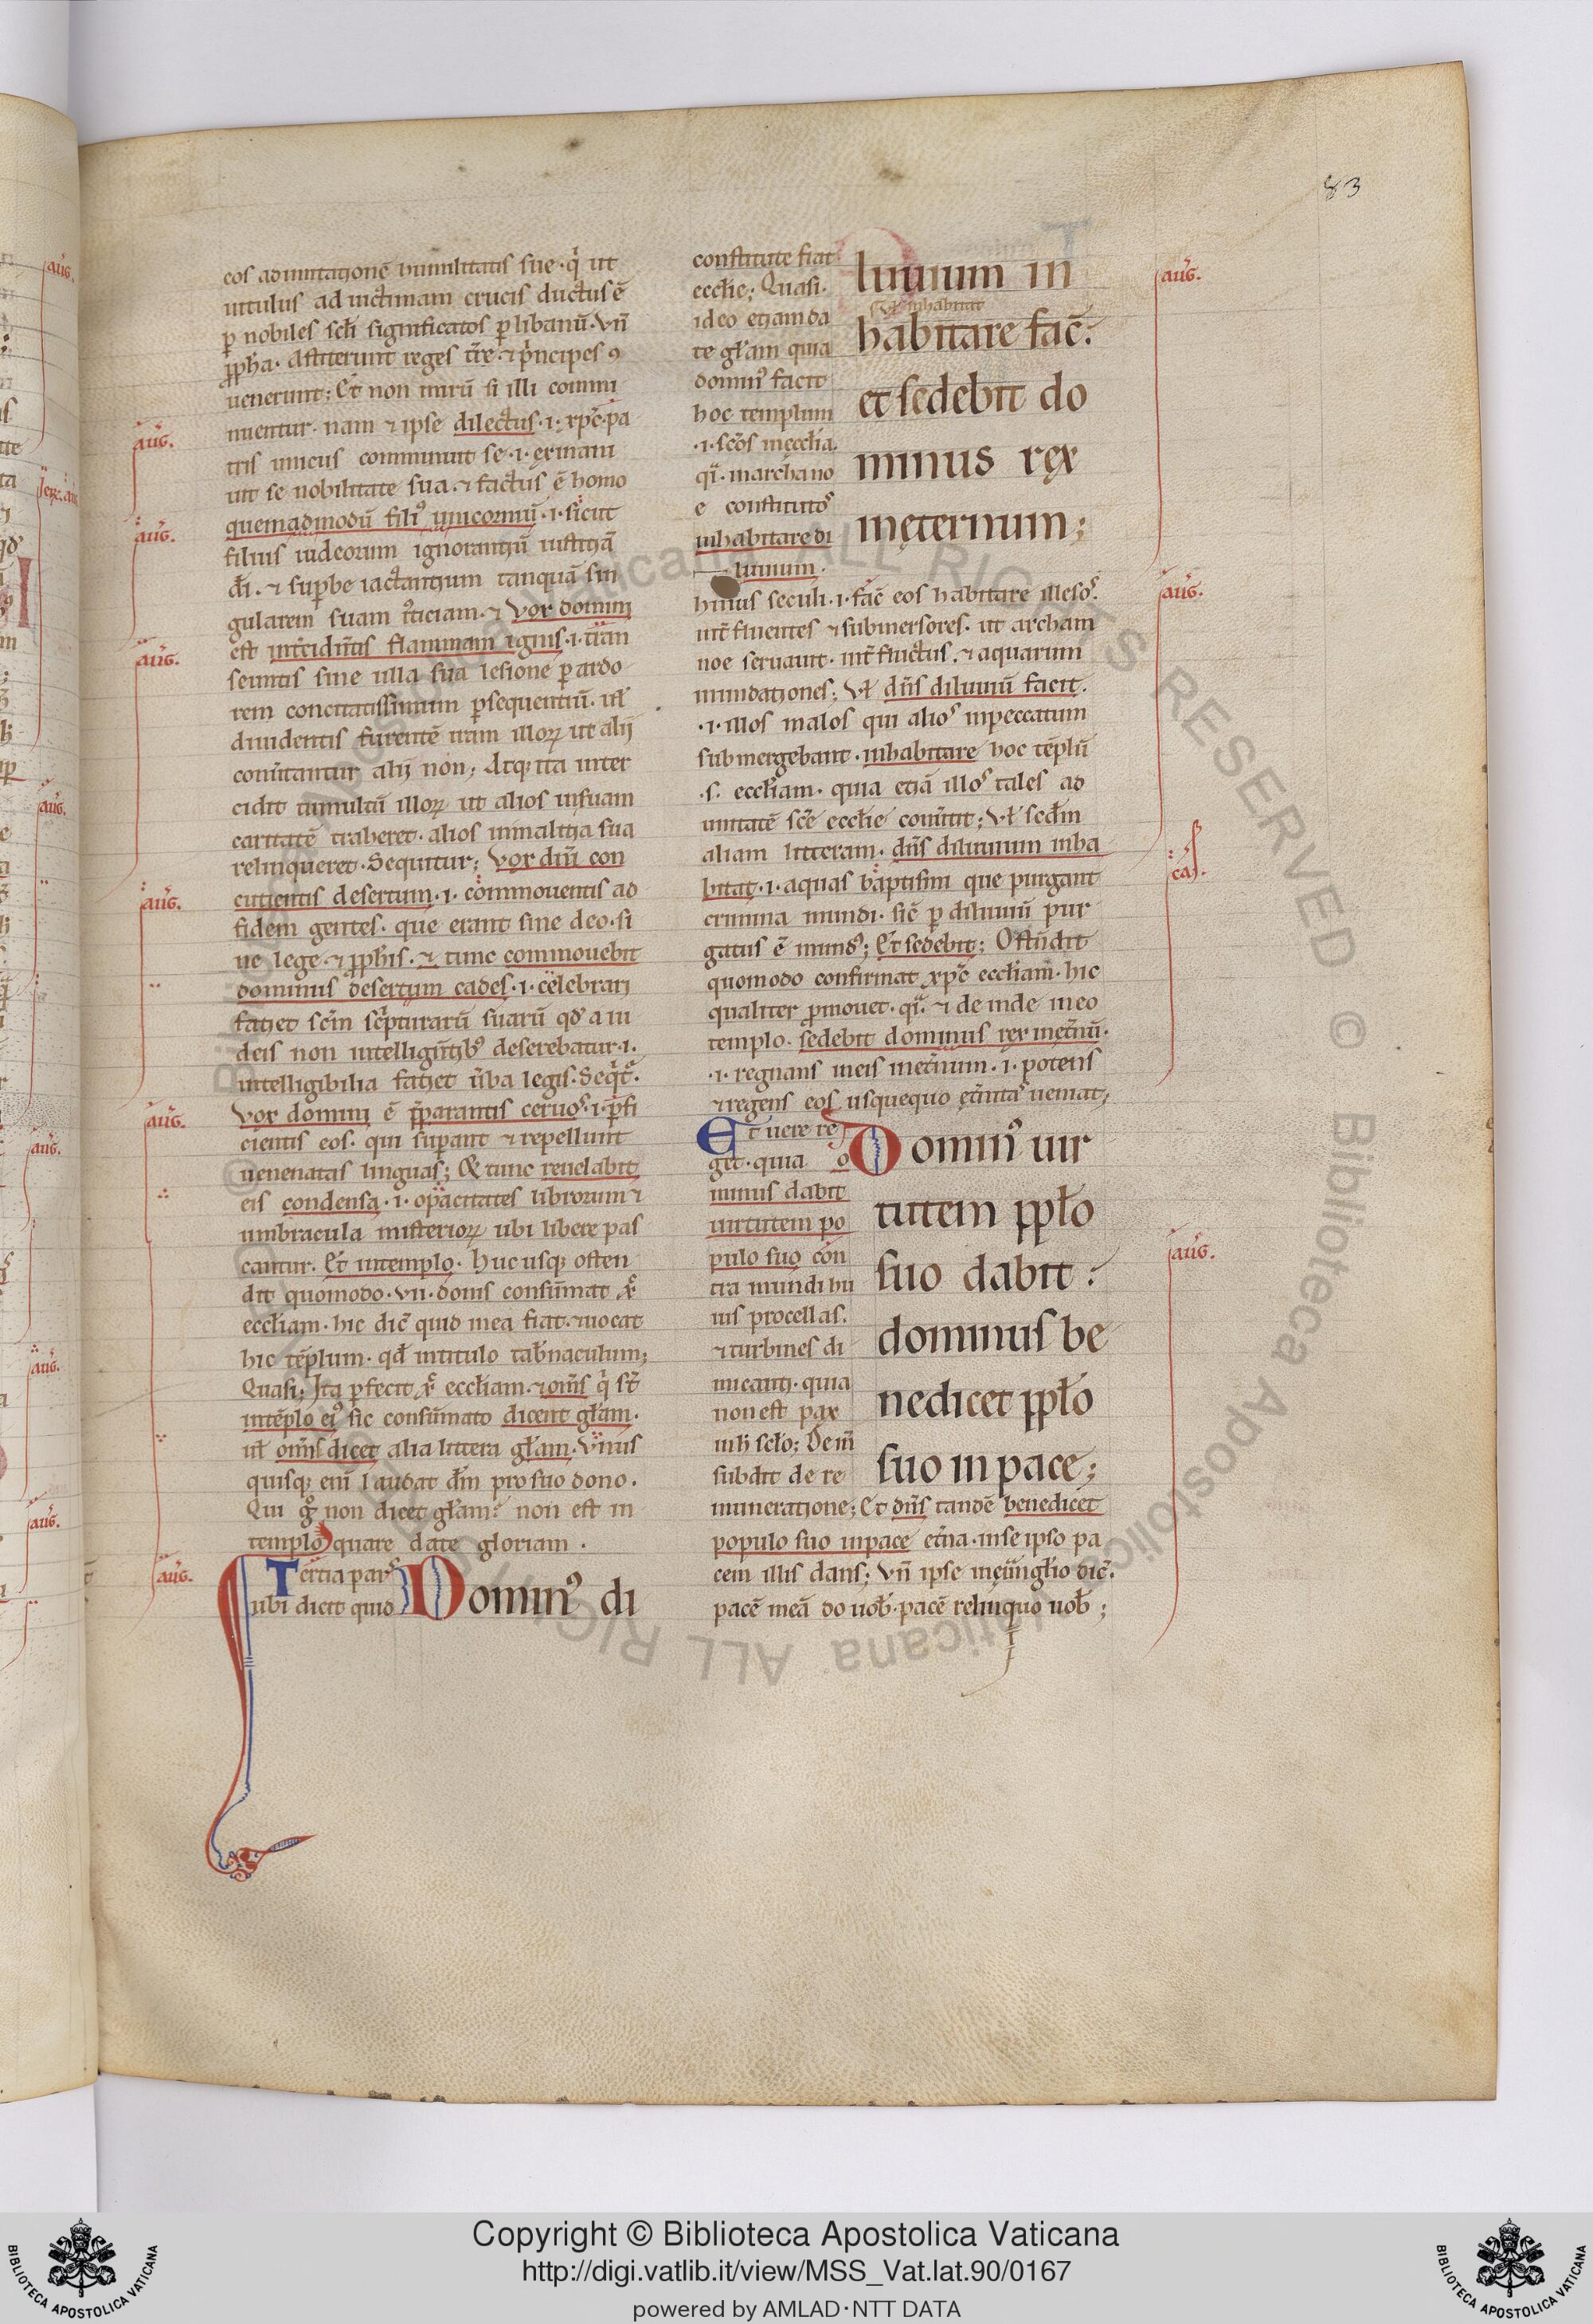 83
eos ad imitationē humilitatis sue · q̇ ut
uitulus ad uictimam crucis ductus ē
p̱ nobiles scł̄i significatos p̱ libanū · Vñ
ꝓph̄a · Astiterunt reges tr̄e · ⁊ p̄ncipes ꝯ
uenerunt; Et non mirū si illi commi
nuentur · nam ⁊ ipse dilectus · i · xp̄c · pa
tris unicus comminuit se · i · exinani
uit se nobilitate sua · ⁊ factus ē homo
quemadmodū filiꝰ unicorniū · i · sicut
filius iudeorum ignorantiū iustitiā
dī · ⁊ sup̱be iactantium tanquā sin
gularem suam iusticiam · ⁊ Vox domini
est int̄cidn̄tis flammam ignis · i · trān
seuntis sine ulla sua lesione p̱ ardo
rem concitatissimum p̱sequentiū · ul̄
diuidentis furentē iram illoꝝ ut alij
conūtantur alij non; Atq; ita inter
cidit tumultū illoꝝ ut alios in suam
caritatē traheret · alios in malitia sua
relinqueret · Sequitur; Vox dn̄i con
cutientis desertum · i · commouentis ad
fidem gentes · que erant sine deo · si
ue lege · ⁊ ꝓph̄is · ⁊ tunc commouebit
dominus desertum cades · i · celebrari
faciet scīn sc̄pturarū suarū qđ a iu
deis non intellign̄tibꝰ deserebatur · i ·
intelligibilia faciet ūba legis · Seqt̄ ·
Vox domini ē p̄parantis ceruos · i · p̱fi
cientis eos · qui sup̱ant ⁊ repellunt
uenenatas linguas; & tunc reuelabit
eis condensa · i · opacitates librorum ⁊
umbracula misterioꝝ ubi libere pas
cantur · Et in templo · Huc usq; osten
dit quomodo · VII · donis consūmat x̄
eccl̄iam · hic dic̄ quid in ea fiat · ⁊ uocat
hic tēplum · qđ in titulo tab̄naculum;
Quasi; Ita p̱fecit x̄ eccl̄iam · ⁊ om̄s q̇ st̄
in tēplo eiꝰ sic consūmato dicent gl̄am ·
ul̄ om̄s dicet alia littera gl̄am · Vnus
quisq; eni laudat dm̄ pro suo dono ·
Qui ḡ non dicet gl̄am? non est in
templo quare date gloriam ·
Tertia pars
ubi dicit quid
Dominꝰ di
constitute fiat
eccl̄ie; Quasi ·
ideo etiam da
te gl̄am quia
dominꝰ facit
hoc templum
· i · sc̄os in eccl̄ia
qi · in archa no
e constitutos
inhabitare di
luuium ·
luuium in
ul̄ inhabitat
habitare fac̄:
et sedebit do
minus rex
in ęternum;
huius seculi · i · fac̄ eos habitare illesos
int̄ fluentes ⁊ submersores · ut archam
noe seruauit · int̄ fluctus · ⁊ aquarum
inundationes; Vl̄ dn̄s diluuiū facit ·
· i · illos malos qui alios in peccatum
submergebant · inhabitare hoc tēplū
· s · eccl̄iam · quia etiā illos tales ad
unitatē sc̄e eccl̄ie conūtit; Vl̄ scd̄m
aliam litteram · dn̄s diluuium inha
bitat · i · aquas baptismi que purgant
crimina mundi · sic̄ p̱ diluuiū pur
gatus ē mundꝰ; Et sedebit; Ostn̄dit
quomodo confirmat xp̄c eccl̄iam · hic
qualiter promouet · qi · ⁊ deinde in eo
templo · sedebit dominus rex in et̄nū ·
· i · regnans in eis in et̄num · i · potens
⁊ regens eos usquequo et̄nitas ueniat;
Et uere re
get · quia do
minus dabit
uirtutem po
pulo suo con
tra mundi hu
ius procellas ·
⁊ turbines di
micanti · quia
non est pax
in h̄ scl̄o; Dein̄
subdit de re
Dominꝰ uir
tutem ppl̄o
suo dabit:
dominus be
nedicet ppl̄o
suo in pace;
muneratione; Et dn̄s tandē benedicet
populo suo in pace et̄na · in se ipso pa
cem illis dans; Vn̄ ipse in eūngl̄io dic̄ ·
pacē meā do uob̄ · pacē relinquo uob̄;
aug̃.
aug̃.
aug̃.
aug̃.
aug̃.
aug̃.
aug̃.
aug̃.
cas̃.
aug̃.
Copyright © Biblioteca Apostolica Vaticana
http://digi.vatlib.it/view/MSS_Vat.lat.90/0167
powered by AMLAD·NTT DATA
BIBLIOTECA APOSTOLICA VATICANA
BIBLIOTECA APOSTOLICA VATICANA
© Biblioteca Apostolica Vaticana ALL RIGHTS RESERVED © Biblioteca Apostolica Vaticana ALL RIGHTS